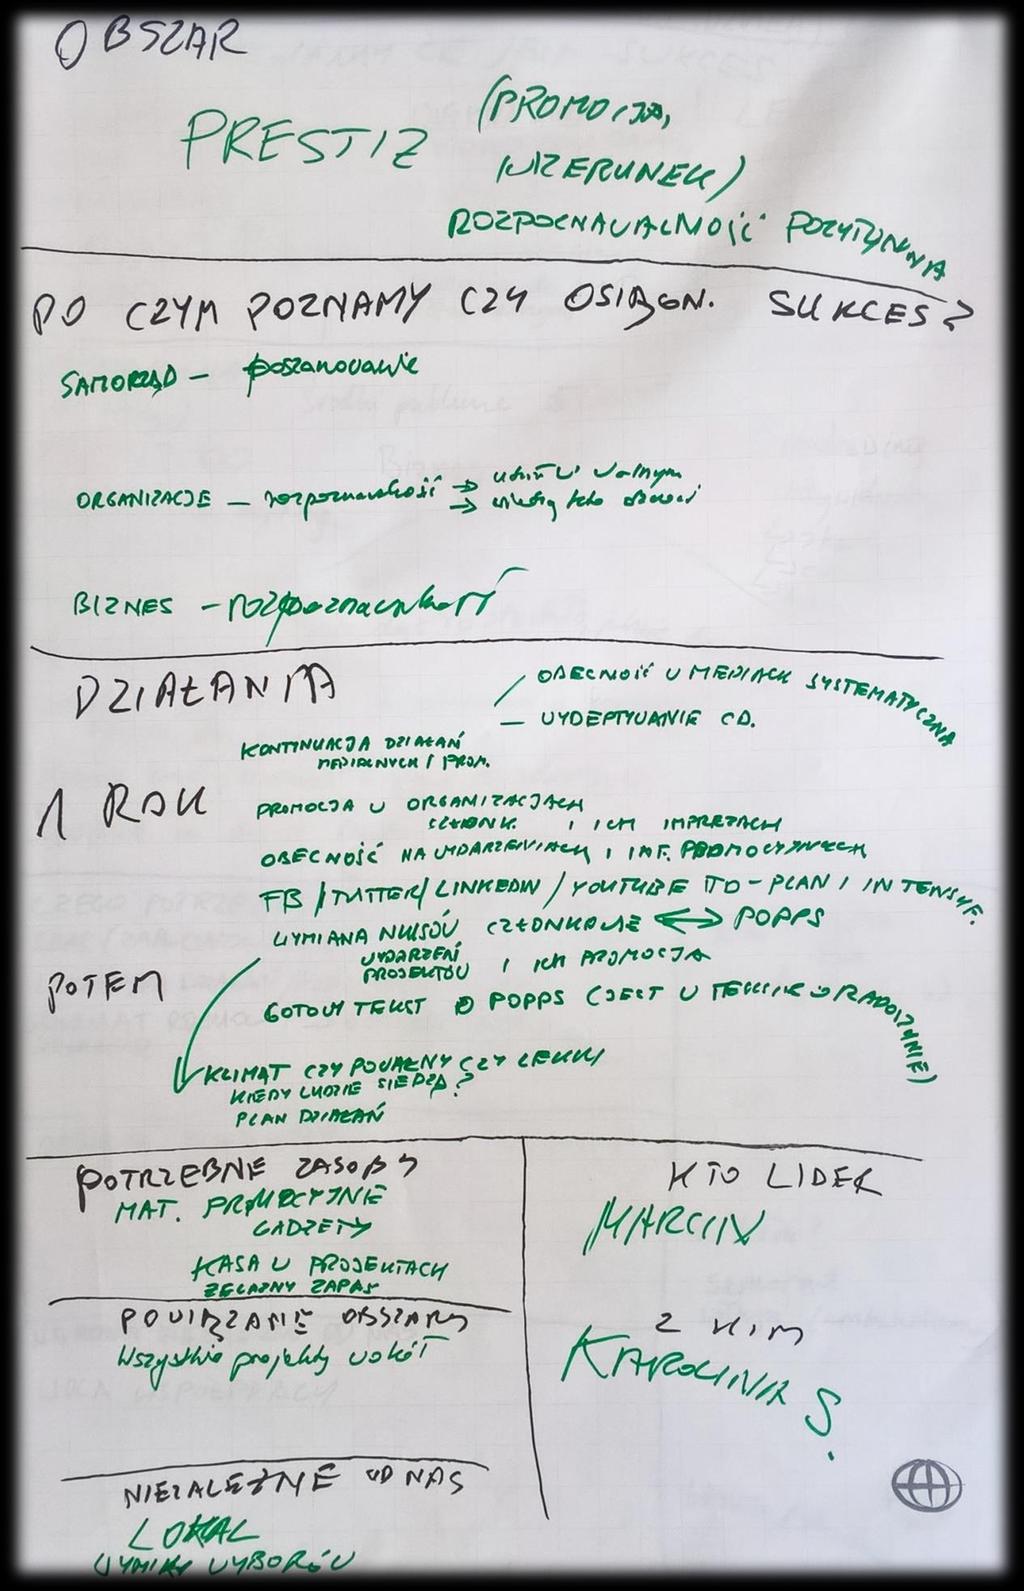 OBSZAR
PRESTIZ (PROMOCJA,
WIZERUNEK)
ROZPOZNAWALNOŚĆ POZYTYWNA
PO CZYM POZNAMY CZY OSIĄGN. SUKCES?
SAMORZĄD – poszanowanie
ORGANIZACJE – rozpoznawalność →
→ wiedzą kto
BIZNES – rozpoznawalność
DZIAŁANIA
– OBECNOŚĆ W MEDIACH SYSTEMATYCZNA
– WYDEPTYWANIE CD.
KONTYNUACJA DZIAŁAŃ
MEDIALNYCH I PROM.
1 ROK
PROMOCJA W ORGANIZACJACH
CZŁONK. I ICH IMPREZACH
OBECNOŚĆ NA WYDARZENIACH I INF. PROMOCYJNYCH
FB / TWITTER / LINKEDIN / YOUTUBE ITD – PLAN I INTENSYF.
WYMIANA NEWSÓW CZŁONKOWIE ↔ POPPS
WYDARZEŃ
PROJEKTÓW I ICH PROMOCJA
POTEM
GOTOWY TEKST O POPPS (JEST W TEKŚCIE O RADOSZYNIE)
KLIMAT CZY POWAŻNY CZY LEKKI
KIEDY LUDZIE SIEDZĄ?
PLAN DZIAŁAŃ
POTRZEBNE ZASOBY
MAT. PROMOCYJNE
GADŻETY
KASA W PROJEKTACH
ŻELAZNY ZAPAS
KTO LIDER
MARCIN
POWIĄZANE OBSZARY
Wszystkie projekty wokół
Z KIM
KAROLINA S.
NIEZALEŻNE OD NAS
LOKAL
WYNIKI WYBORÓW